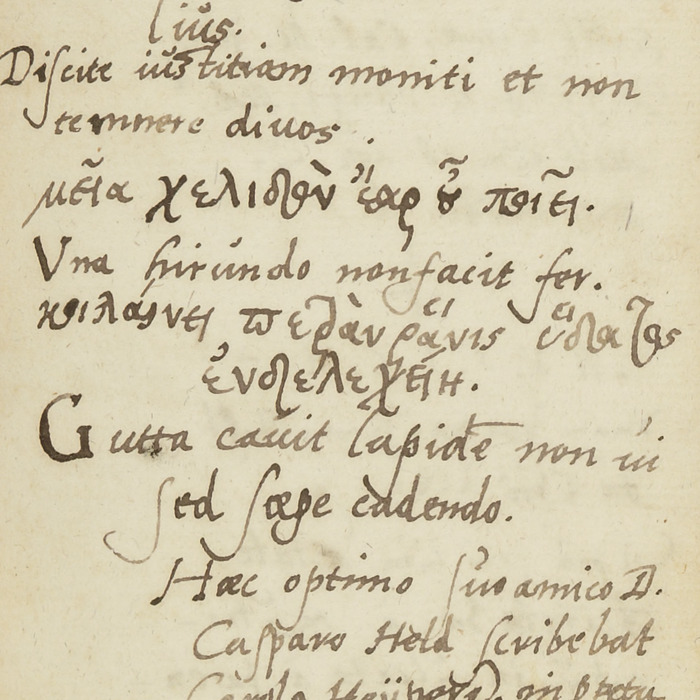 lius.
Discite iustitiam moniti et non
temnere divos.
μεῖα χελιδὼν ἔαρ οὐ ποιεῖ.
Una hirundo non facit fer.
κοιλαίνει πετρὰν ῥάνις ὕδατος
ἐνδελεχείῃ.
Gutta cauit lapidē non ui
sed sæpe cadendo.
Hæc optimo suo amico D.
Casparo Held scribebat
Carolo